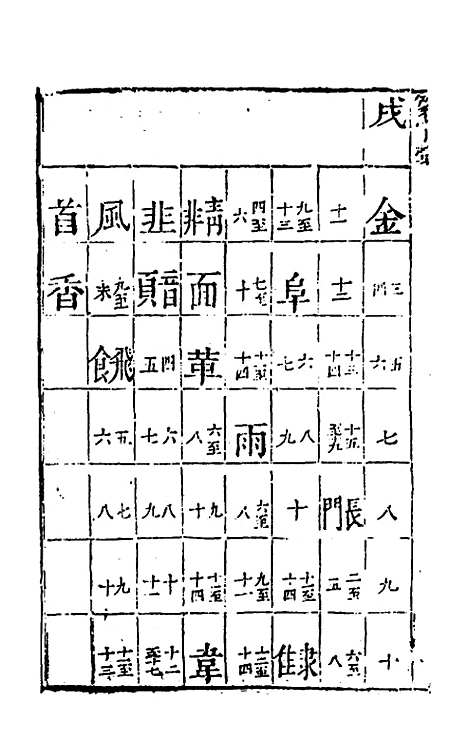 戌
金 三四 五六 七 八 九 十
十一 十二 十三十四 十五至九 長門 二至五 六至八
九至十三 阜 六七 八九 十 十一至十四 隶隹
四至六 七至十 十一至十四 雨 六至八 九至十一 十二至十四
靑非 面 革 六至八 九十 十一至十四 韋
韭 音頁 四五 六七 八九 十十一 十二至十七
風 九至末 飛食 五六 七八 九十 十一至十三
首 香